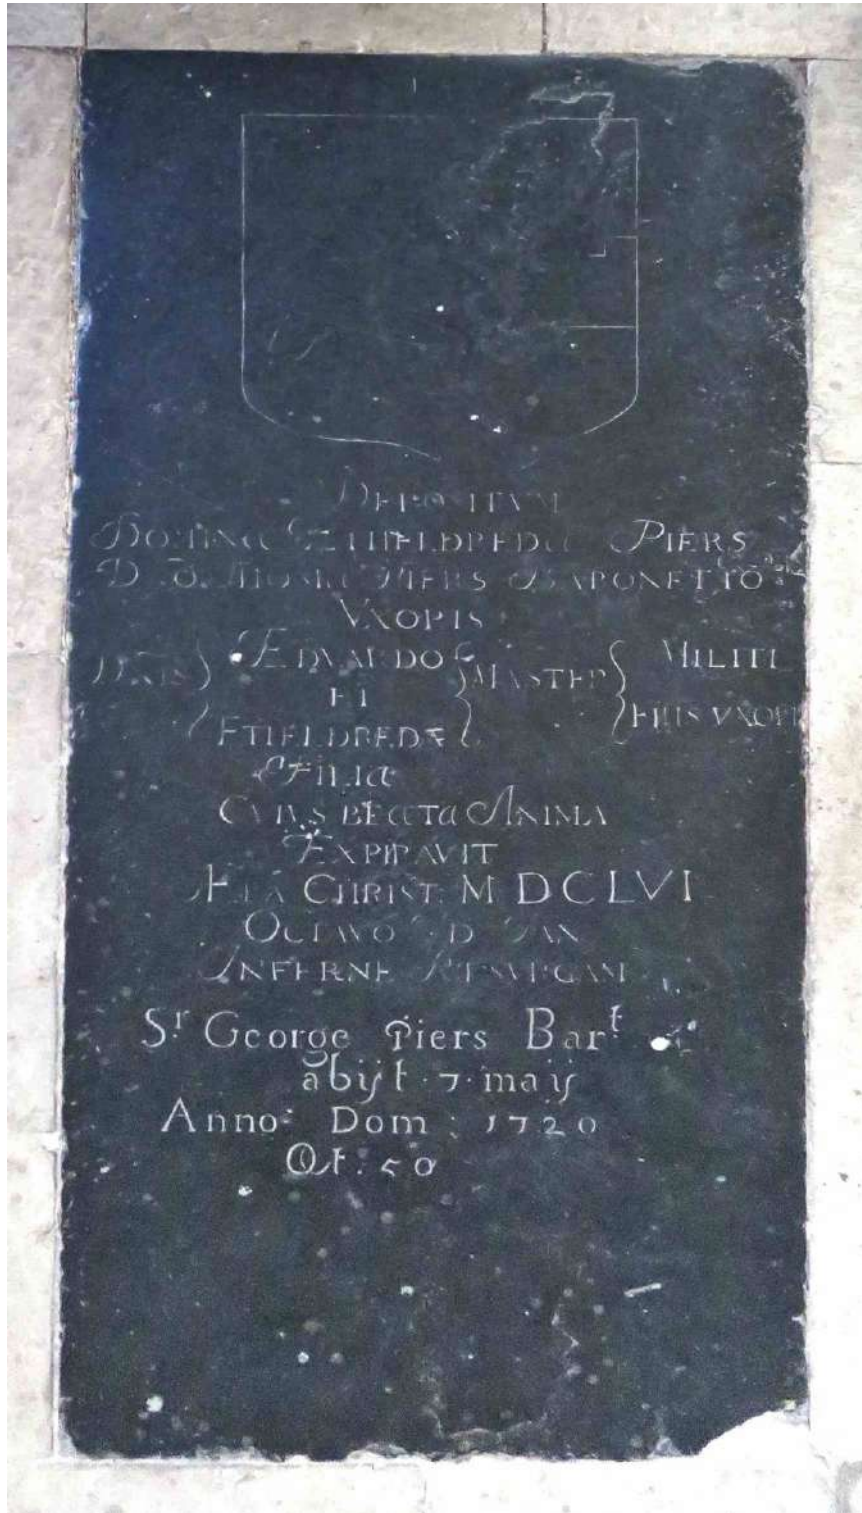 DEPOSITVM
Dominæ ETHELDREDÆ PIERS
D THOMÆ PIERS BARONETTO
VXORIS
EDVARDO MASTER MILITI
ET
ETHELDREDÆ EIUS VXORI
Filiæ
CVIVS BEATA ANIMA
EXPIRAVIT
ÆRA CHRIST: MDCLVI
OCTAVO D JAN
INFERNE RESVRGAM
Sr George Piers Bart
abijt · 7 · maij
Anno: Dom : 1720
Æt : 50